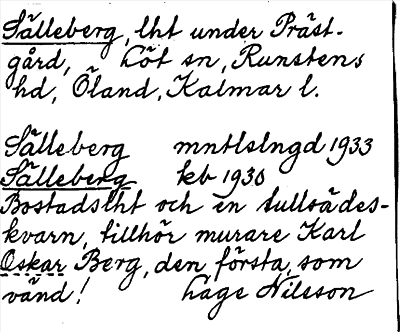 Sälleberg, lht under Präst-
gård, Löt sn, Runstens
hd, Öland, Kalmar l.
Sälleberg mntlslngd 1933
Sälleberg kb 1930
Bostadslht och en tullsädes-
kvarn, tillhör murare Karl
Oskar Berg, den första, som
vänd! Lage Nilsson